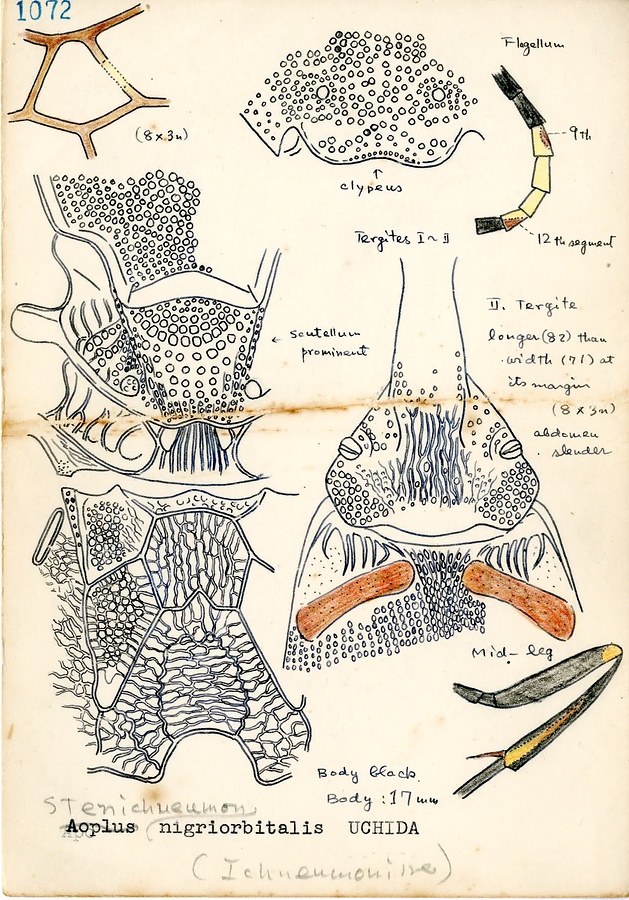 1072
(8x3n)
clypeus
Flagellum
9th
12th segment
Tergites I~II
← scutellum
prominent
II. Tergite
longer (82) than
width (71) at
its margin
(8x3n)
abdomen
slender
Mid-leg
Body black.
Body: 17mm
Stenichneumon
Aoplus nigriorbitalis UCHIDA
(Ichneumoninae)